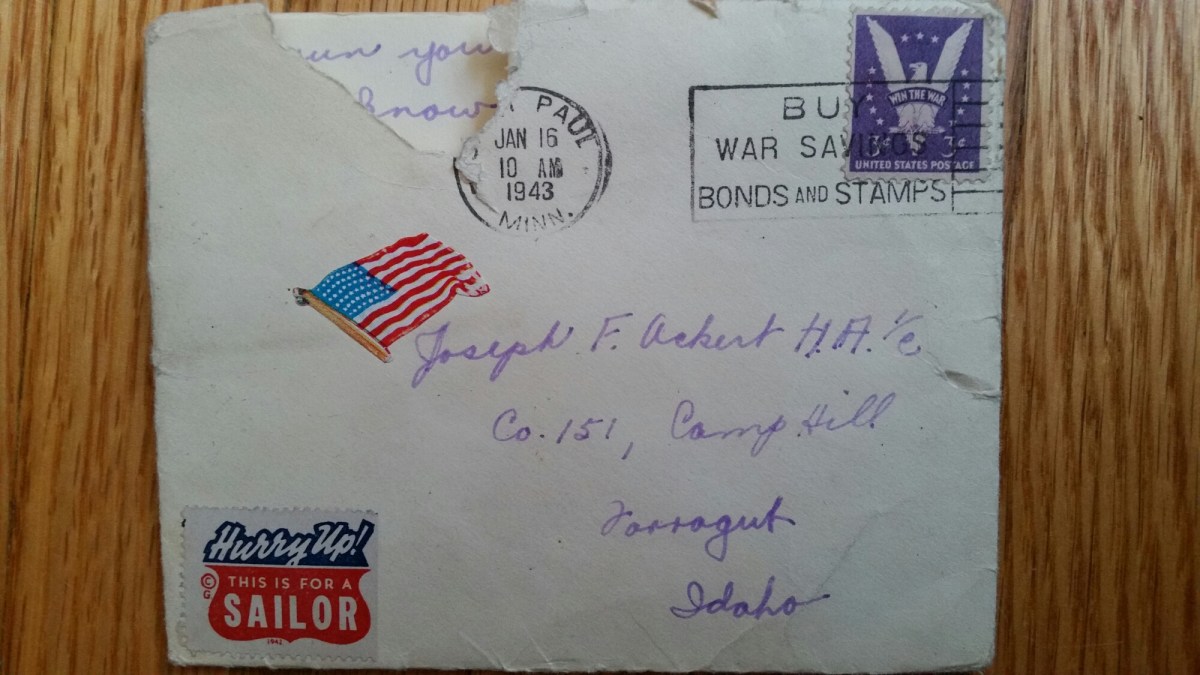 you
know
PAUL
JAN 16
10 AM
1943
MINN.
BUY
WAR SAVINGS
BONDS AND STAMPS
WIN THE WAR
3¢ 3¢
UNITED STATES POSTAGE
Joseph F. Ackert H.A. 1/c
Co. 151, Camp Hill
Farragut
Idaho
Hurry Up!
© G
THIS IS FOR A
SAILOR
1942